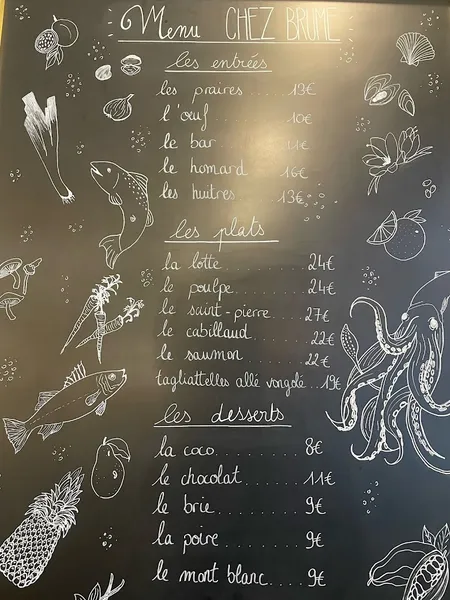 Menu CHEZ BRUME
les entrées
les praires ..... 13€
l'œuf ..... 10€
le bar ..... 11€
le homard ..... 16€
les huitres ..... 13€
les plats
la lotte ..... 24€
le poulpe ..... 24€
le saint-pierre ..... 27€
le cabillaud ..... 22€
le saumon ..... 22€
tagliattelles allé vongole ... 19€
les desserts
la coco ..... 8€
le chocolat ..... 11€
le brie ..... 9€
la poire ..... 9€
le mont blanc ..... 9€